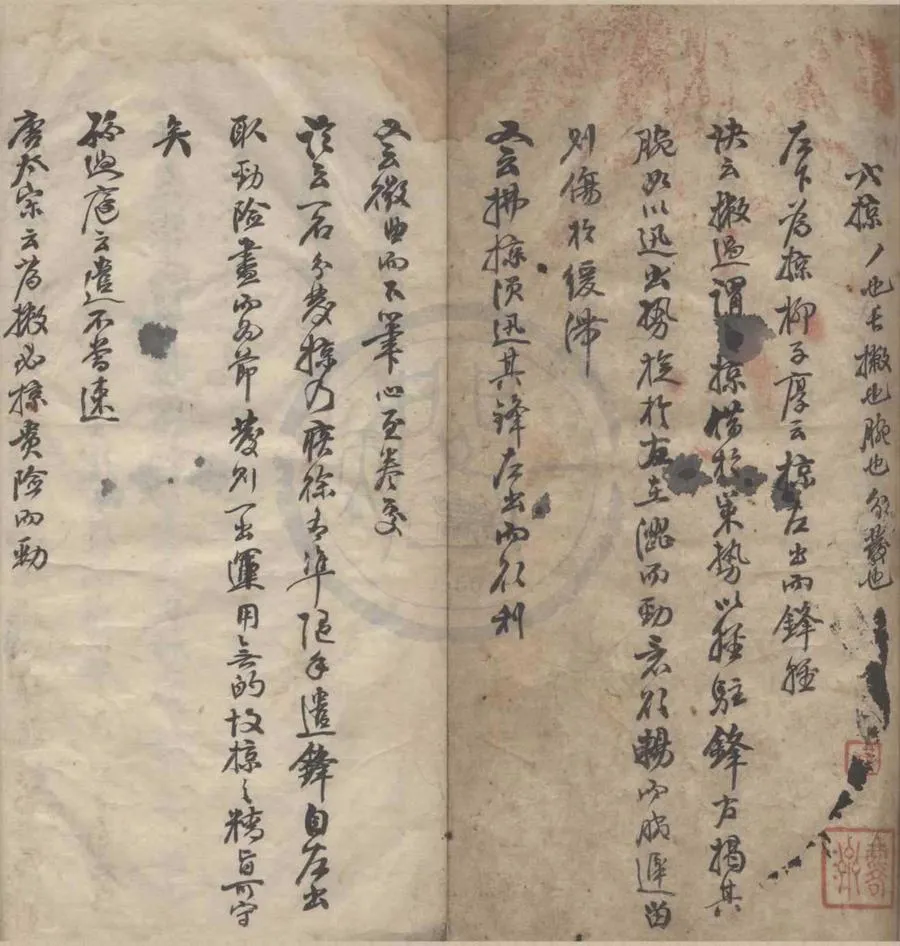 六掠丿也長撇也腕也分發也
左下為掠柳子厚云掠左出而鋒輕
訣云撇過謂之掠借於策勢以輕駐鋒右揭其
腕加以迅出勢旋於右在澀而勁意欲暢而婉遲留
則傷於緩滯
又云拂掠須迅其鋒左出而欲利
又云微曲而下筆心至卷處
論云一名分發掠乃疾徐有準隨手遣鋒自左出
取勁險盡而為節發則一出運用無的故掠之精旨可守
矣
孫過庭云遣不常速
唐太宗云為撇必掠貴險而勁